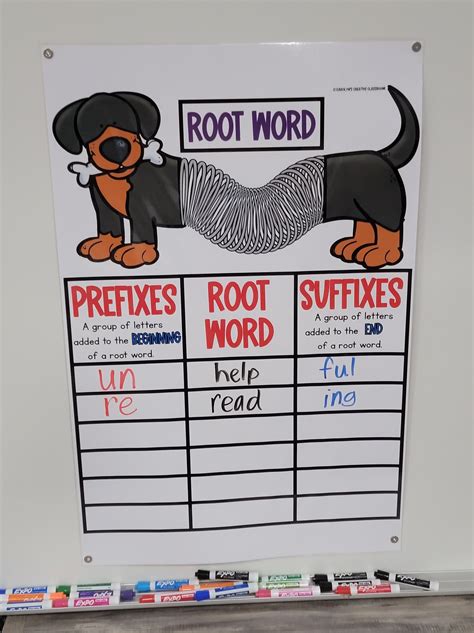 ROOT WORD
PREFIXES
A group of letters
added to the BEGINNING
of a root word.
ROOT
WORD
SUFFIXES
A group of letters
added to the END
of a root word.
un help ful
re read ing
EXPO
EXPO
EXPO
EXPO